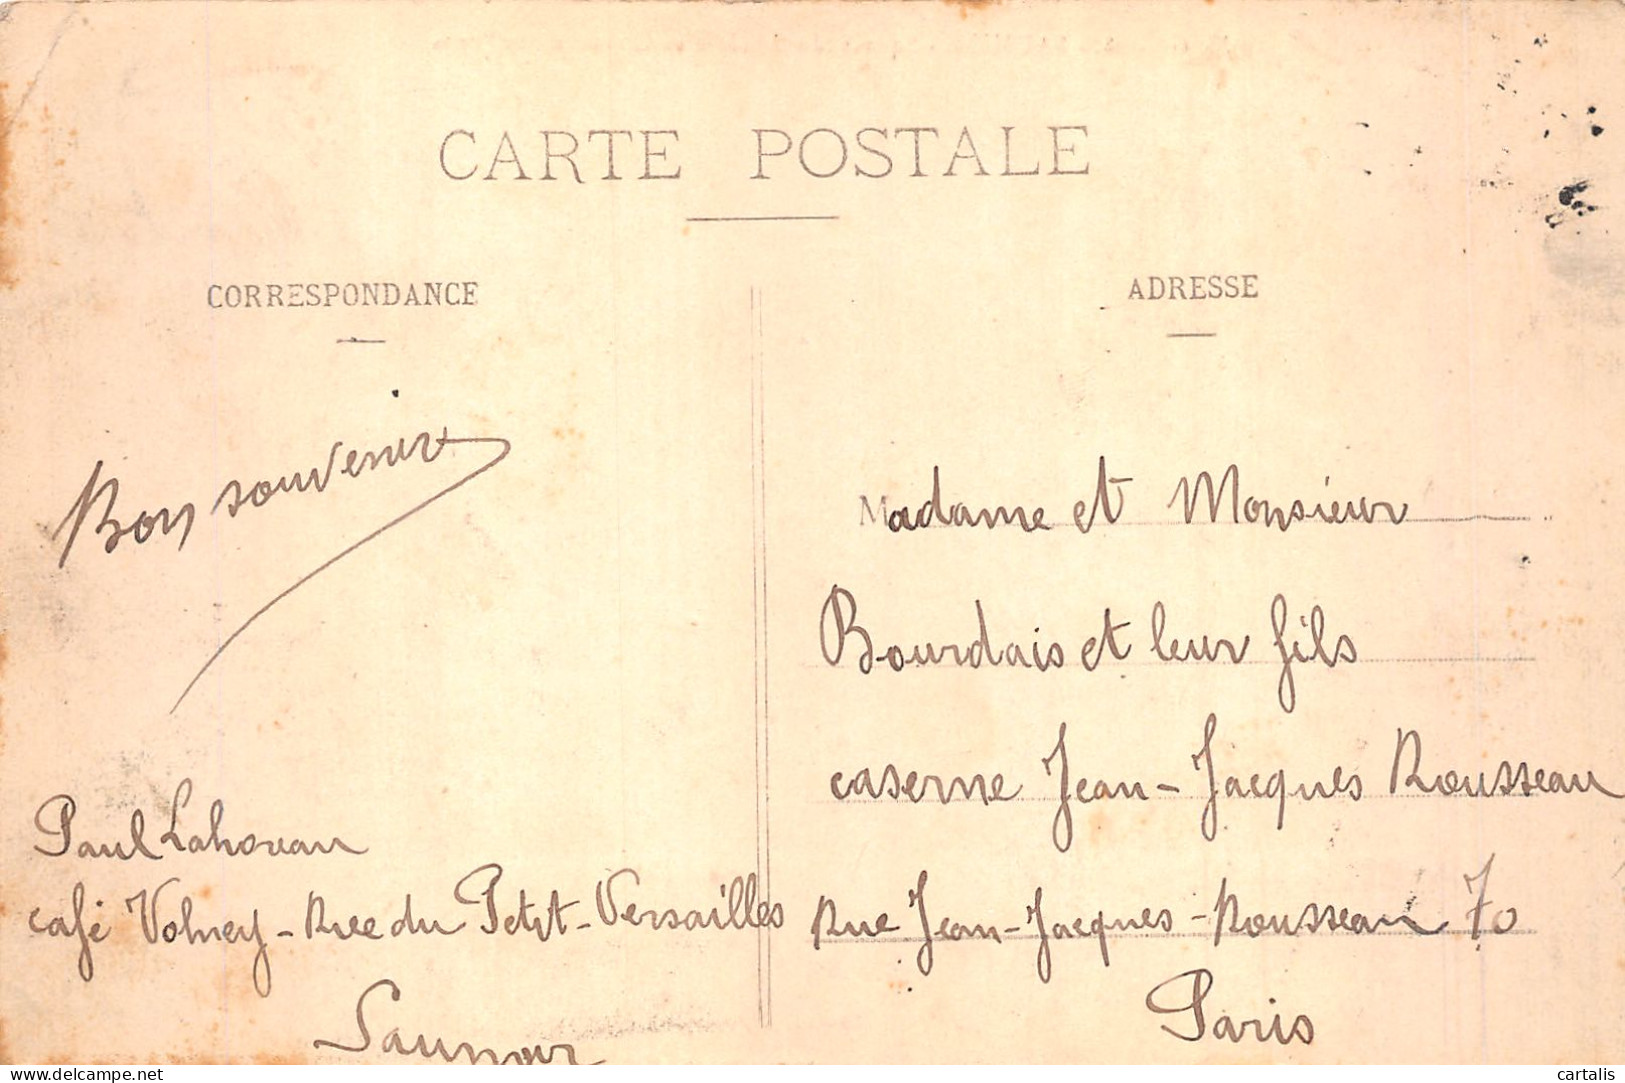 CARTE POSTALE
CORRESPONDANCE
Bon souvenir
Paul Lahoreau
café Volney - Rue du Petit-Versailles
Saumur
ADRESSE
Madame et Monsieur
Bourdais et leur fils
caserne Jean-Jacques Rousseau
Rue Jean-Jacques-Rousseau 70
Paris
delcampe.net
cartalis